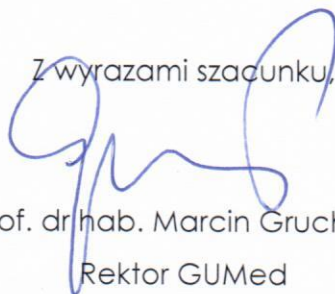 Z wyrazami szacunku,
of. dr hab. Marcin Gruch
Rektor GUMed